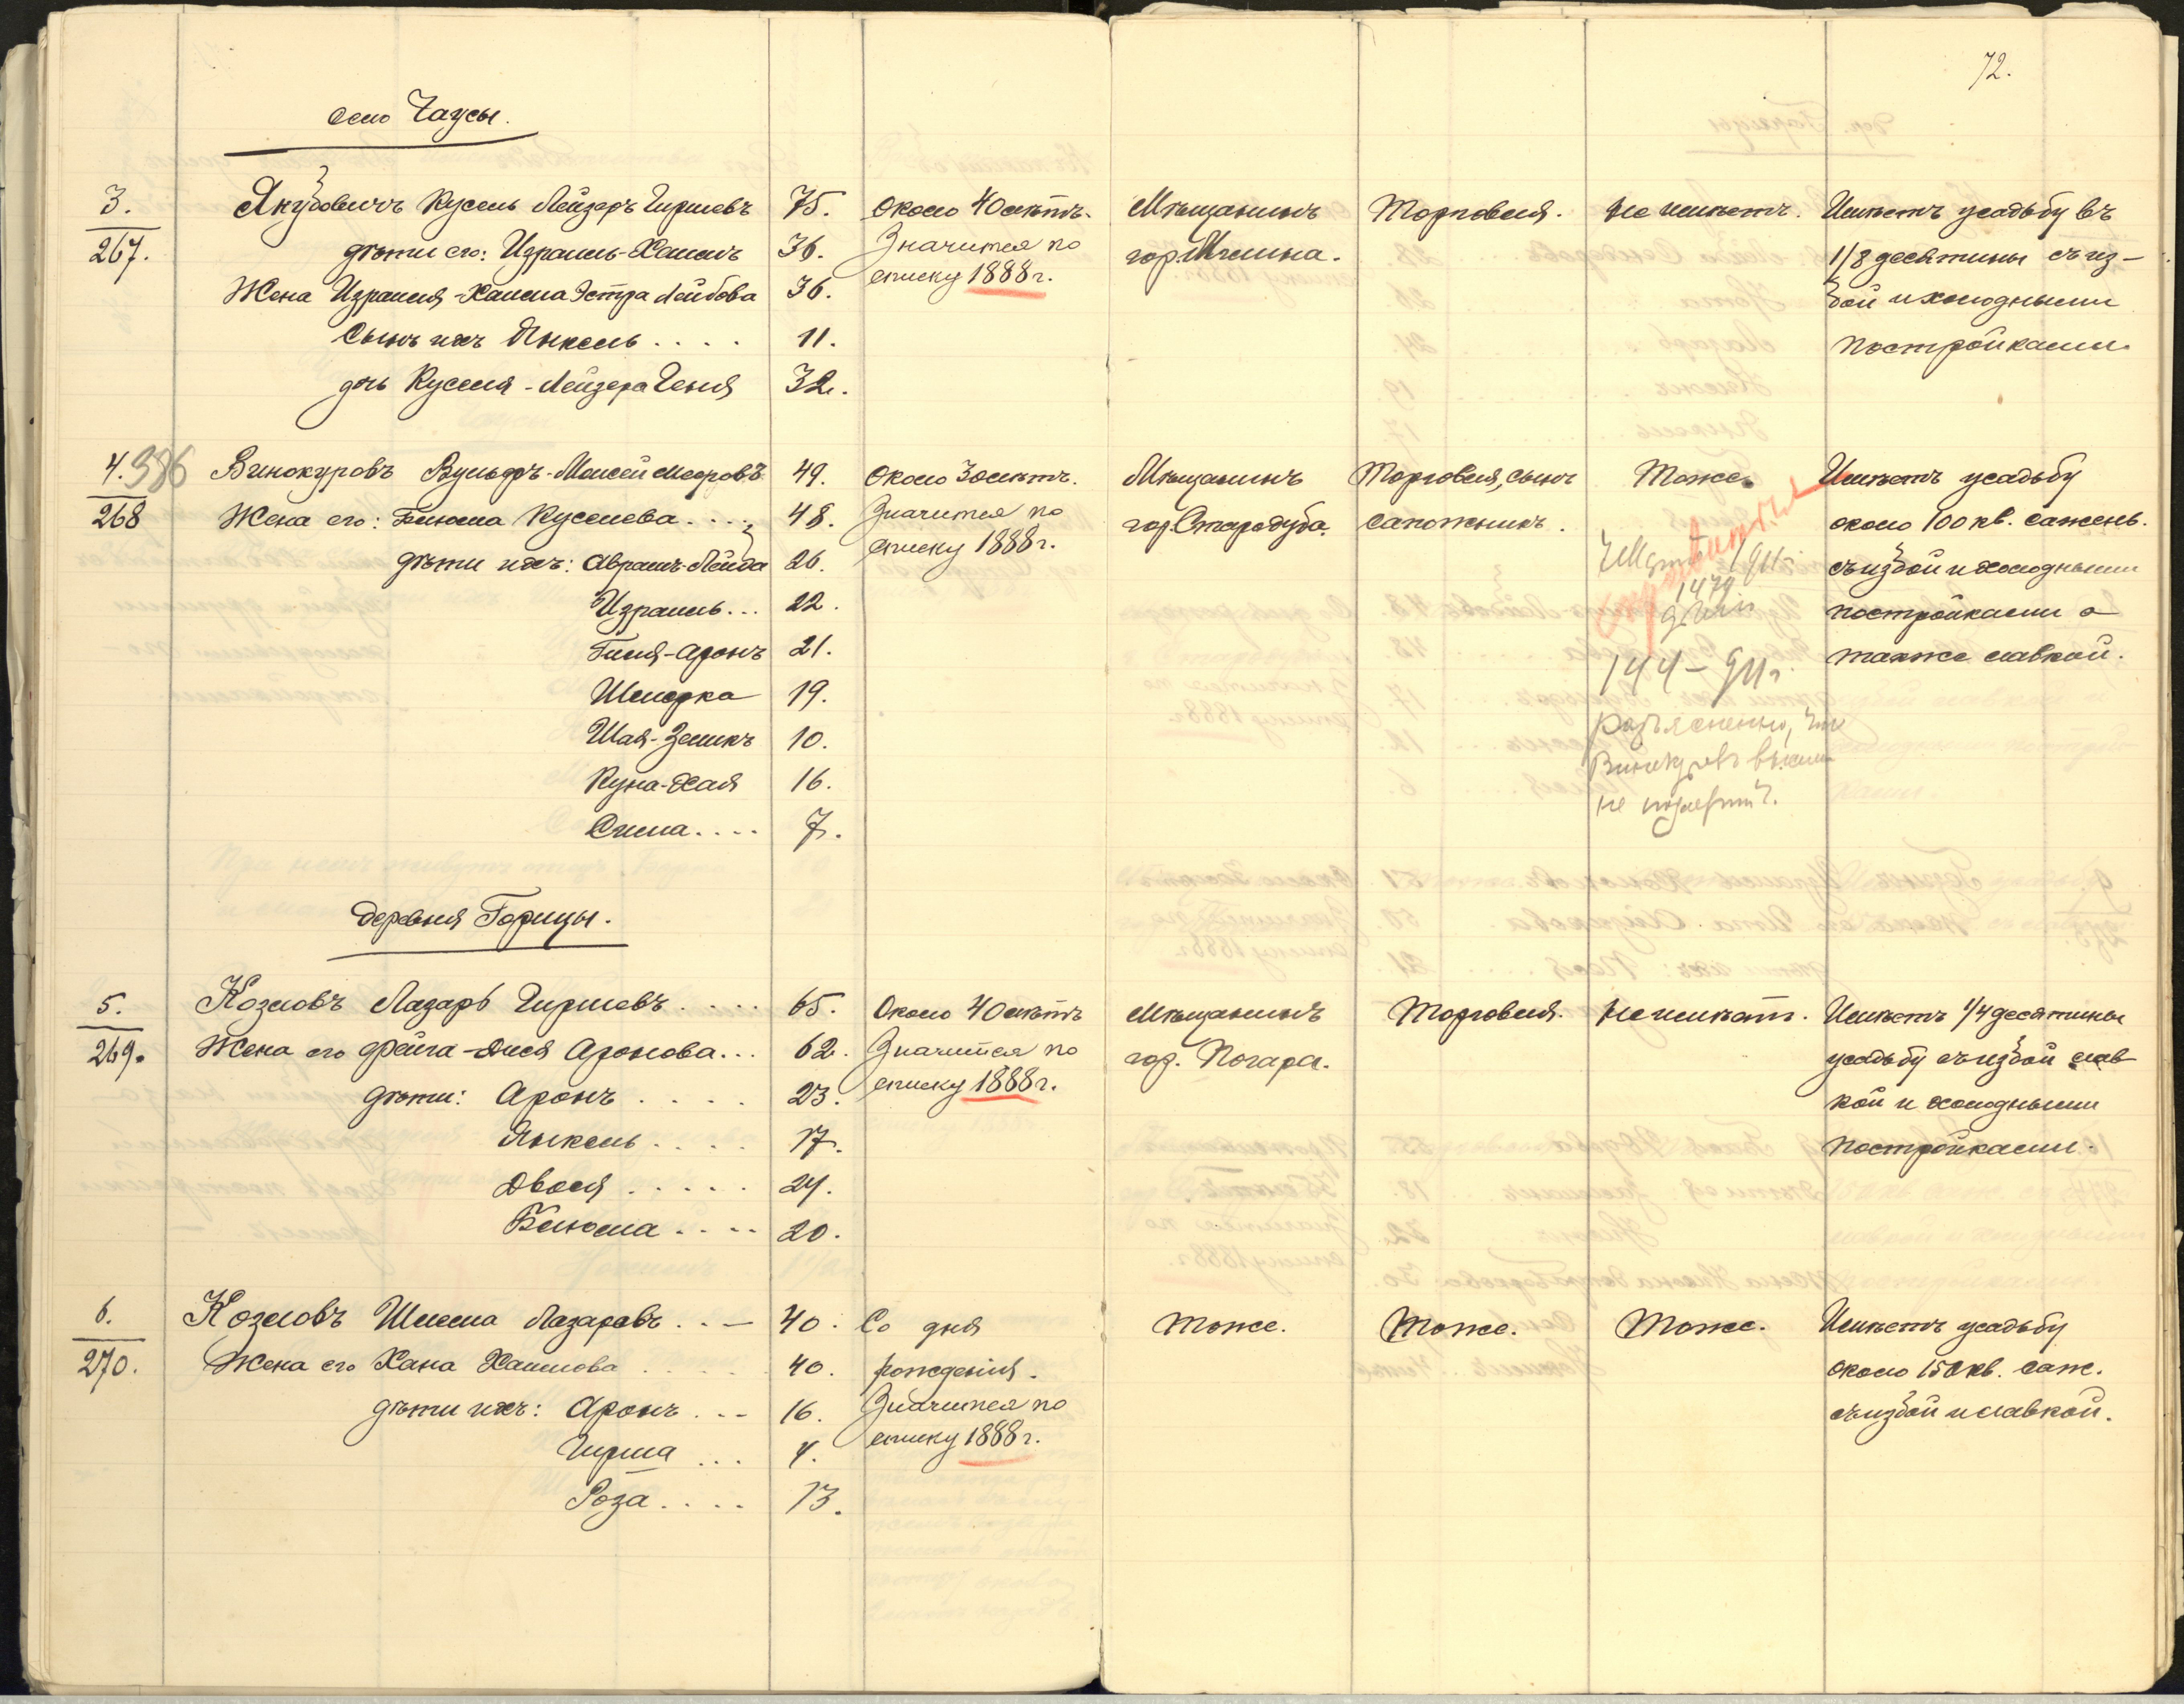 72.
село Чаусы.
3.
267.
Якубовичъ Кусель Лейзеръ Гиршевъ 75. Около 40 лѣтъ. Мѣщанинъ Торговля. Не имѣетъ. Имѣетъ усадьбу въ
дѣти его: Израиль-Хаимъ 36. Значится по гор. Мглина. 1/8 десятины съ из-
Жена Израиля-Хаима Эстра Лейбова 36. списку 1888 г. бой и холодными
Сынъ ихъ Янкель . . . . 11. постройками.
дочь Куселя-Лейзера Геня 32.
4. 386
268
Винокуровъ Вульфъ-Моисей Мееровъ 49. Около 30 лѣтъ. Мѣщанинъ Торговля, сынъ Тоже. Имѣетъ усадьбу
Жена его: Блюма Куселева . . . . 48. Значится по гор. Стародуба. сапожникъ. около 100 кв. сажень.
дѣти ихъ: Абрамъ-Лейба 26. списку 1888 г. съ избой и холодными
Израиль . . . 22. 1479 постройками а
Гиля-Аронъ 21. 144 – также лавкой.
Шмерка 19.
Шая-Зеликъ 10. разъяснено, что
Куна-Хая 16. Винокуровъ
Сима . . . . 7. не
деревня Горицы.
5.
269.
Козловъ Лазарь Гиршевъ . . . . 65. Около 40 лѣтъ Мѣщанинъ Торговля. Не имѣетъ. Имѣетъ 1/4 десятины
Жена его Фейга-Двся Аронова . . . 62. Значится по гор. Погара. усадьбу съ избой лав
дѣти: Аронъ . . . . 23. списку 1888 г. кой и холодными
Янкель . . . . 17. постройками.
Двося . . . . . 24.
Блюма . . . . 20.
6.
270.
Козловъ Шлема Лазаревъ . . – 40. Со дня Тоже. Тоже. Тоже. Имѣетъ усадьбу
Жена его Хана Хаимова . . . . . 40. рожденія. около 150 кв. саж.
дѣти ихъ: Аронъ . . . 16. Значится по съ избой и лавкой.
Гирша . . . 4. списку 1888 г.
Роза . . . . 13.